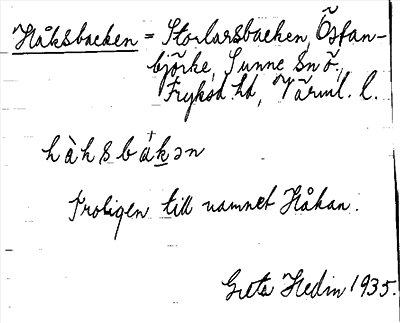 Håksbacken = Storlarsbacken, Östan-
björke, Sunne sn ö,
Fryksd. hd, Värml. l.
hàksbákən
Troligen till namnet Håkan.
Greta Hedin 1935.